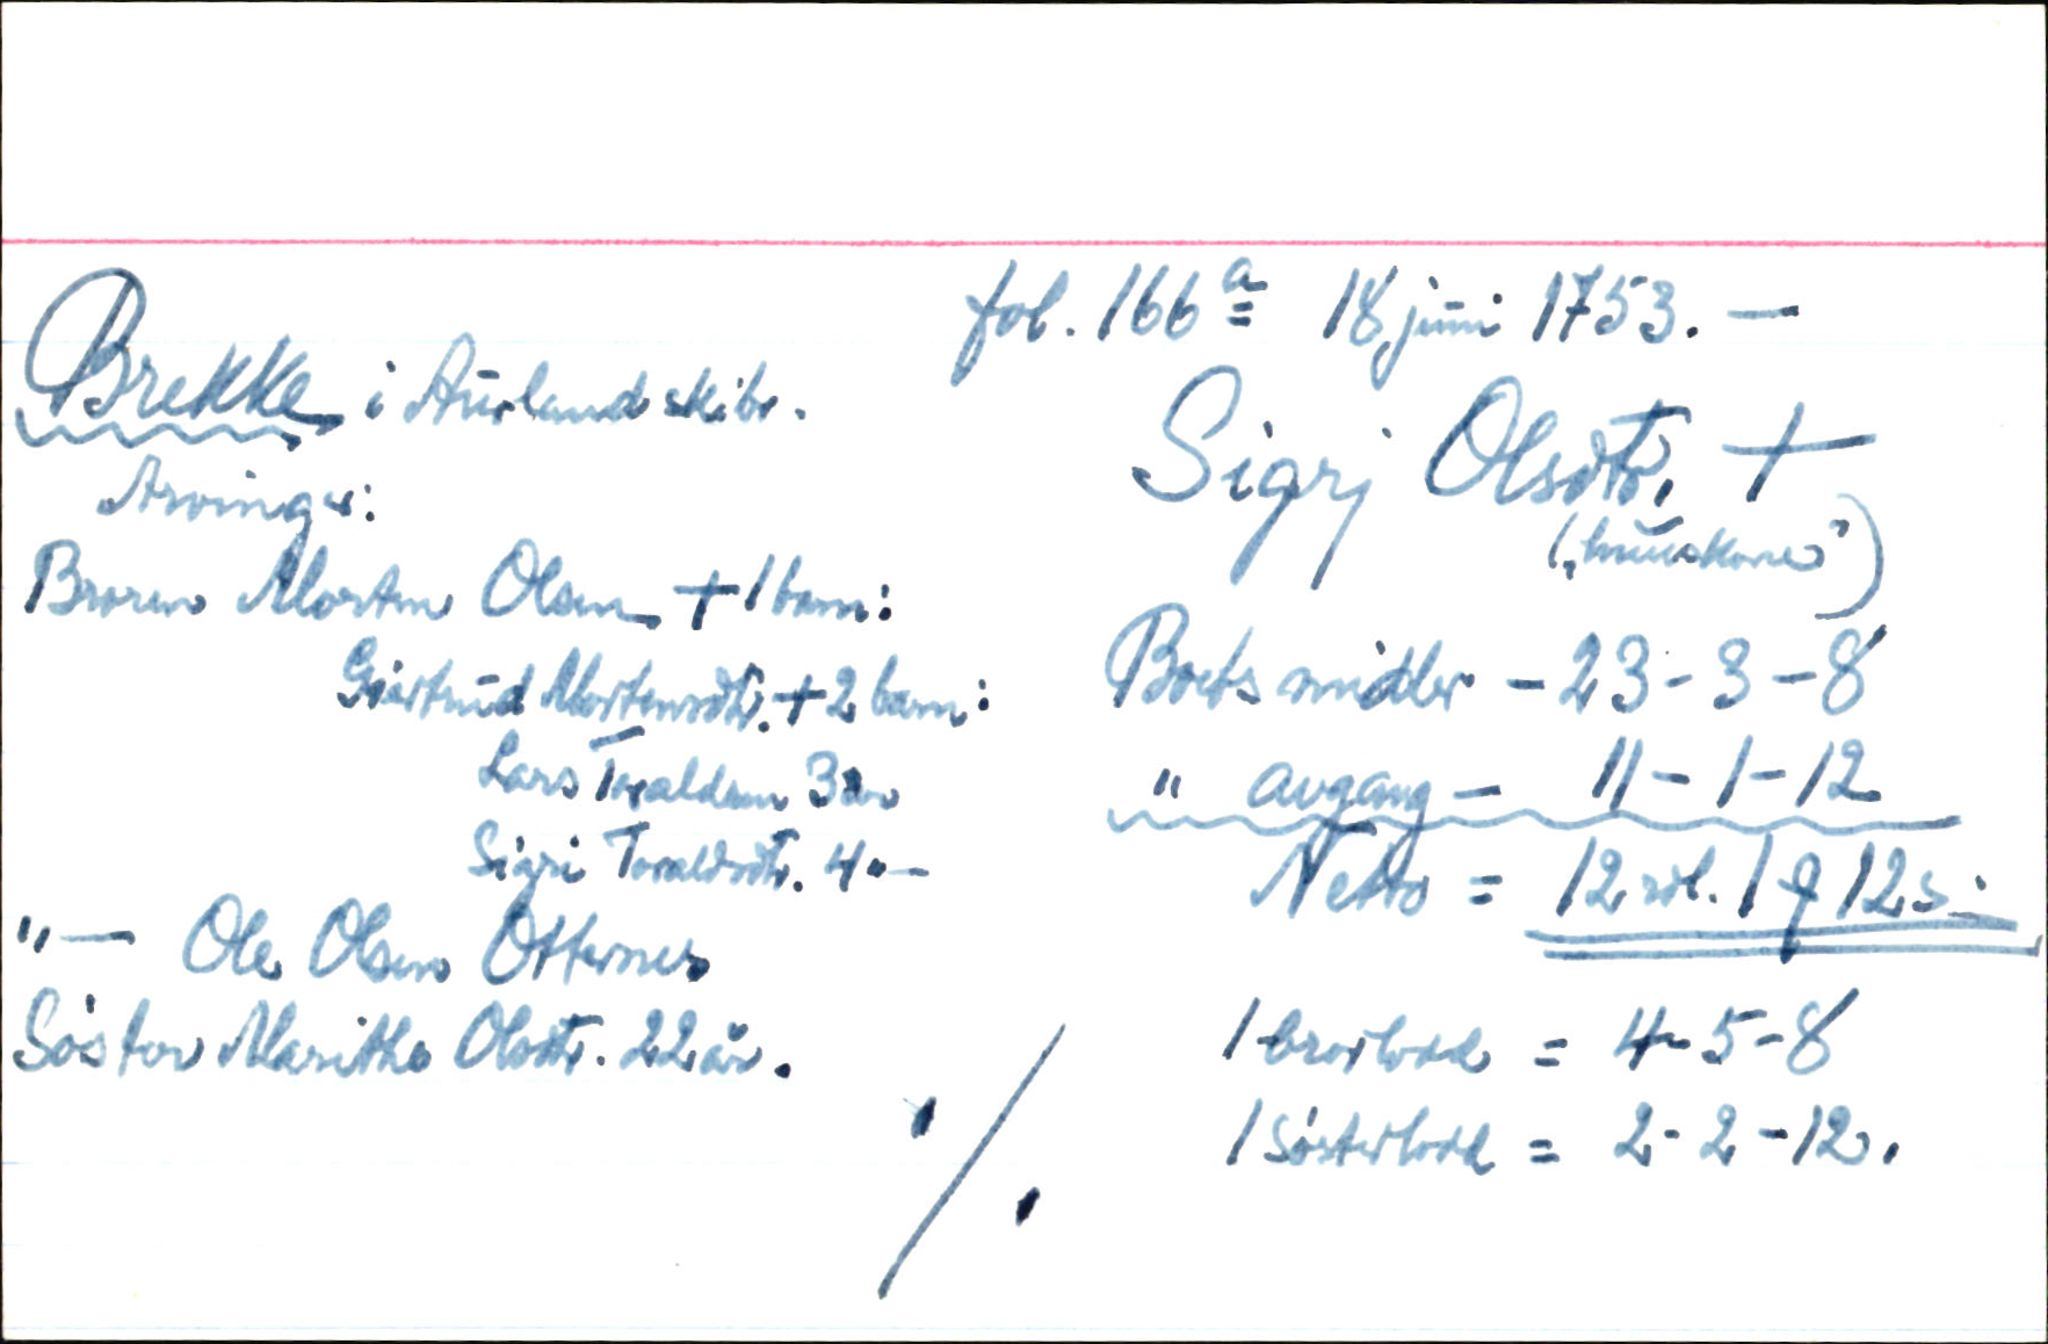 fol. 166 a 18 juni 1753. —
Brekke i Aurland skibr.
Sigrj Olsdtr. +
("huuskone")
Arvinger:
Broren Morten Olsen + 1 barn:
Giertrud Mortensdtr. + 2 barn:
Lars Toraldsen 3 år
Sigri Toraldsdtr. 4 " —
" — Ole Olsen Otternes
Søster Marithe Olsdtr. 22 år.
Boets midler - 23 - 3 - 8
" avgang - 11 - 1 - 12
Netto = 12 rdl. 1 q 12 s.
1 brorlodd = 4 - 5 - 8
1 søsterlodd = 2 - 2 - 12.
./.